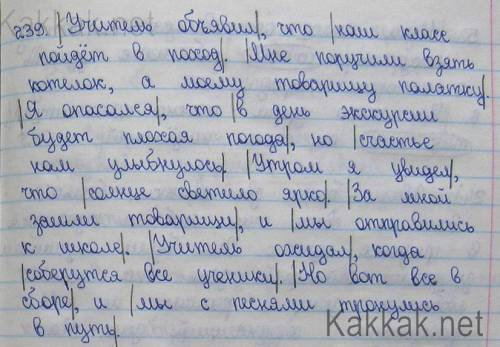 239. |Учитель объявил|, что |наш класс
пойдёт в поход|. |Мне поручили взять
котелок, а моему товарищу палатку|.
|Я опасался|, что |в день экскурсии
будет плохая погода|, но |счастье
нам улыбнулось|. |Утром я увидел|,
что |солнце светило ярко|. |За мной
зашли товарищи|, и |мы отправились
к школе|. |Учитель ожидал|, когда
|соберутся все ученики|. |Но вот все в
сборе|, и |мы с песнями тронулись
в путь|.
Kakkak.net